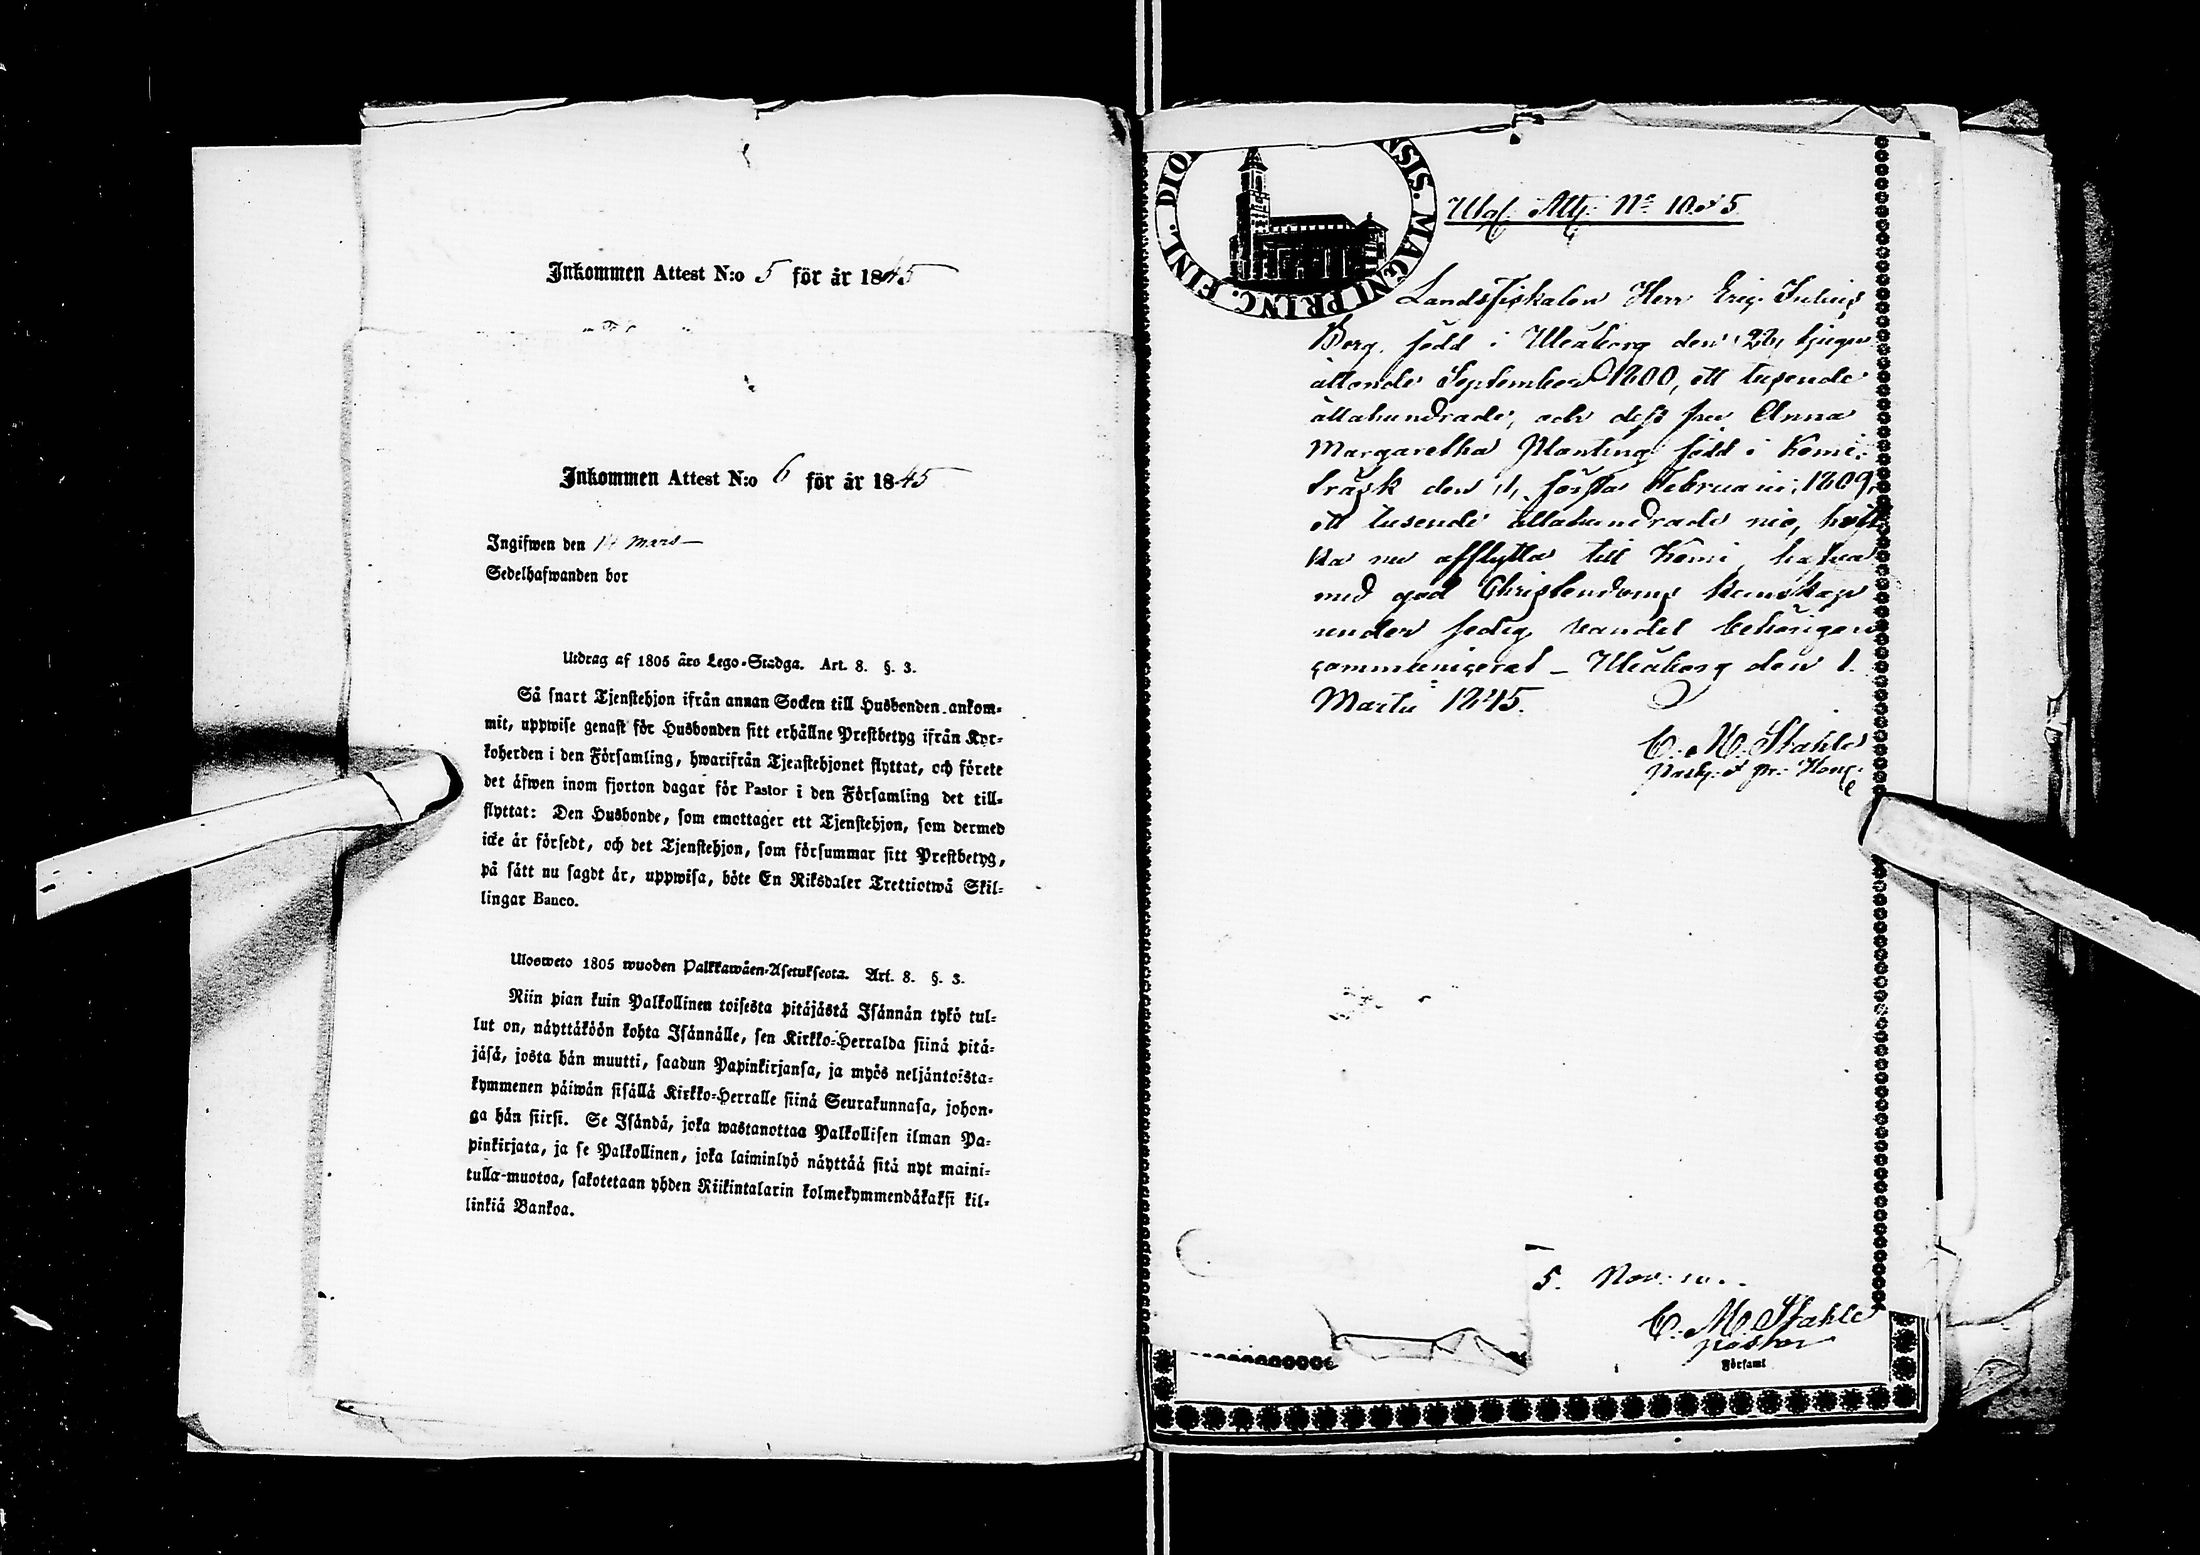 Inkommen Attest N:o 5 för år 1845
Inkommen Attest N:o 6 för år 1845
Ingifwen den 17 Mars
Sedelhafwanden bor
Utdrag af 1805 åro Lego-Stadga. Art. 8. §. 3.
Så snart Tjenstehjon ifrån annan Socken till Husbonden ankom-
mit, uppwise genast för Husbonden sitt erhållne Prestbetyg ifrån Kyr-
koherden i den Församling, hwarifrån Tjenstehjonet flyttat, och förete
det åfwen inom fjorton dagar för Pastor i den Församling det till-
flyttat: Den Husbonde, som emottager ett Tjenstehjon, som dermed
icke är försedt, och det Tjenstehjon, som försummar sitt Prestbetyg,
på sätt nu sagdt är, uppwisa, böte En Riksdaler Trettiotwå Skil-
lingar Banco.
Ulosweto 1805 wuoden Palkkawäen-Asetuksesta. Art. 8. §. 3.
Niin pian kuin Palkollinen toisesta pitäjästä Isännän tykö tul-
lut on, näyttäköön kohta Isännälle, sen Kirkko-Herralda siinä pitä-
jäsä, josta hän muutti, saadun Papinkirjansa, ja myös neljäntoista-
kymmenen päiwän sisällä Kirkko-Herralle siinä Seurakunnasa, johon-
ga hän siirsi. Se Isändä, joka wastanottaa Palkollisen ilman Pa-
pinkirjata, ja se Palkollinen, joka laiminlyö näyttää sitä nyt maini-
tulla-muotoa, sakotetaan yhden Riikintalarin kolmekymmendäkaksi kil-
linkiä Bankoa.
NSIS. MAGNI PRINC. FINL. DIO
Utaf Att: No 10. 5.
Landsfiskalen Herr Eric Julius
Berg, född i Uleåborg den 28, tjugu
åttonde September 1800, ett tusende
åttahundrade, och dess fru Anna
Margaretha Planting född i Kemi-
träsk den 1, första Februarii, 1809,
ett tusende åttahundrade nio, hvil
ka nu afflytta till Kemi, hafva
med god Christendoms kunskap
under sedig vandel behörigen
communicerat _ Uleåborg den 1.
Martii 1845.
C. M. Stahle
5. Nov:
C. M. Stahle
pastor
Församl